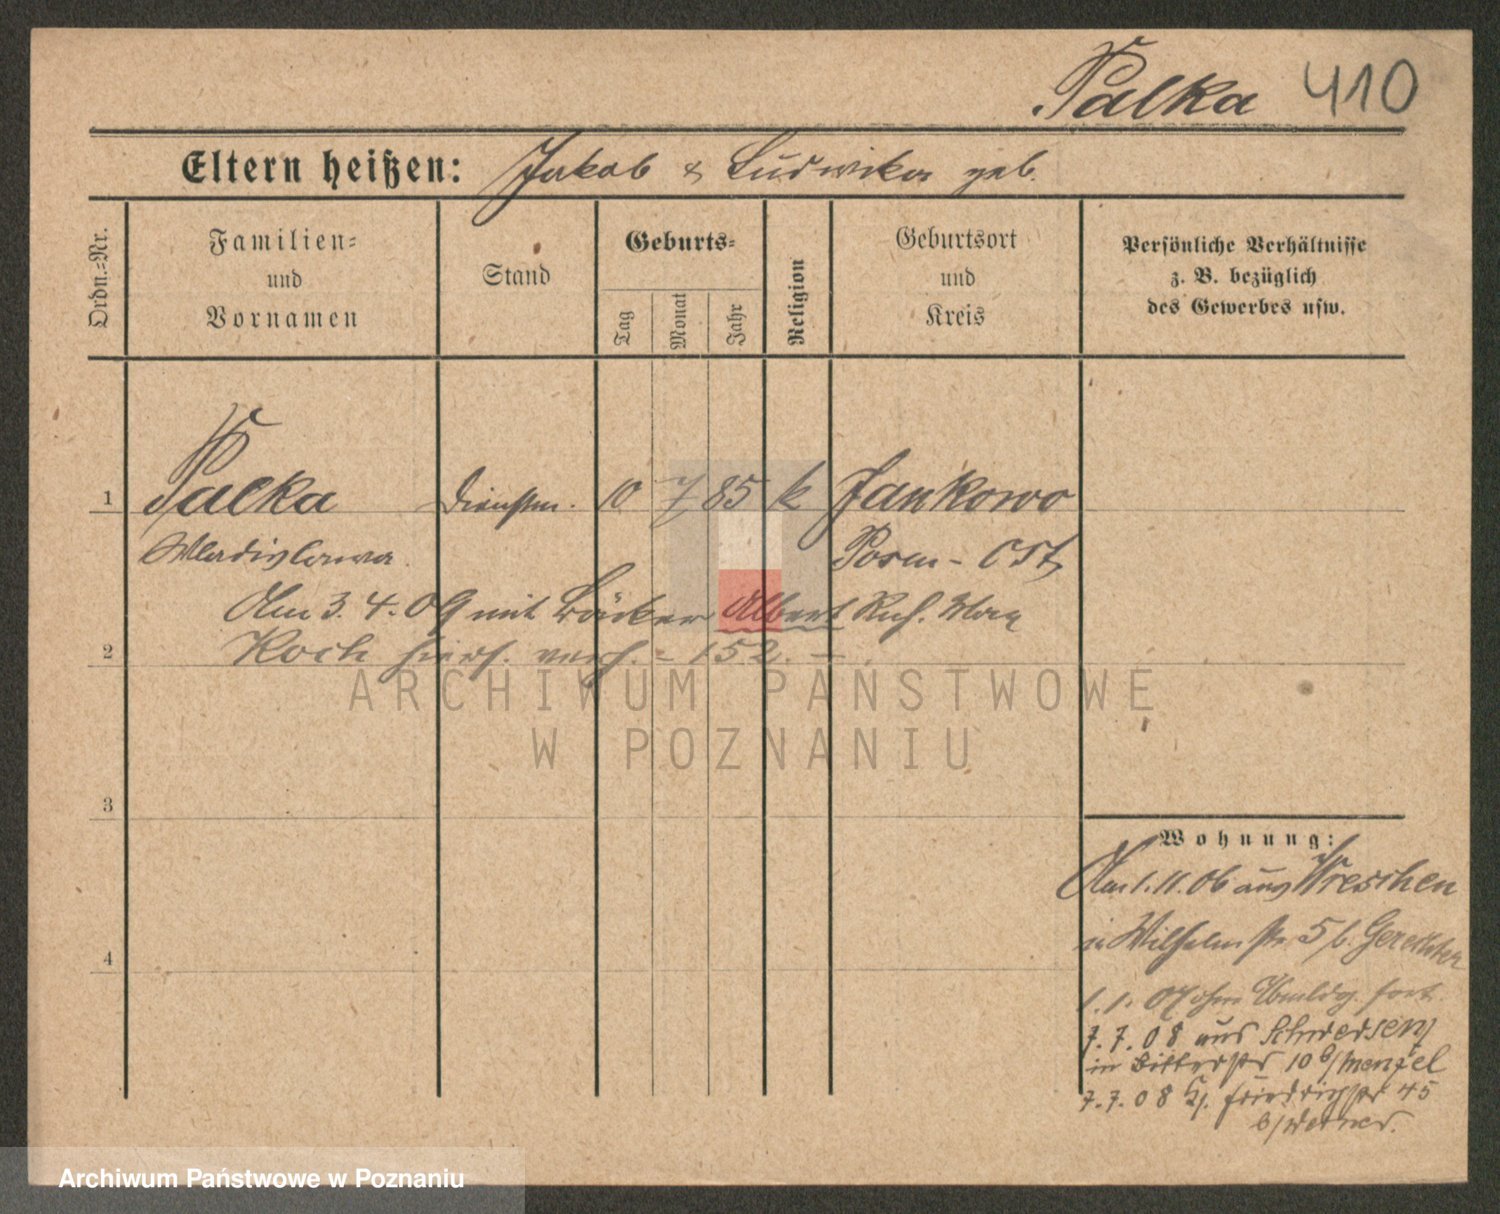 Palka 410
Eltern heißen: Jakob & Ludwika geb.
Ordn.-Nr.
Familien-
und
Vornamen
Stand
Geburts-
Tag
Monat
Jahr
Religion
Geburtsort
und
Kreis
Persönliche Verhältnisse
z. B. bezüglich
des Gewerbes usw.
1 Palka Dienstm. 10 7 85 k Jankowo
Wladislawa Posen - Ost
Am 3. 4. 09 mit Bäcker Albert Rich. Max
2 Koch hiers. verh. - 152. -
3
4
Wohnung:
Am 1. 11. 06 aus Wreschen
in Wilhelmstr 5 b.
1. 1. 07 ohne Abmldg. fort.
7. 7. 08 aus Schwersenz
in Ritterstr 10 b/ Menzel
7. 7. 08 Friedrichstr 45
b/ Werner.
ARCHIWUM PAŃSTWOWE
W POZNANIU
Archiwum Państwowe w Poznaniu